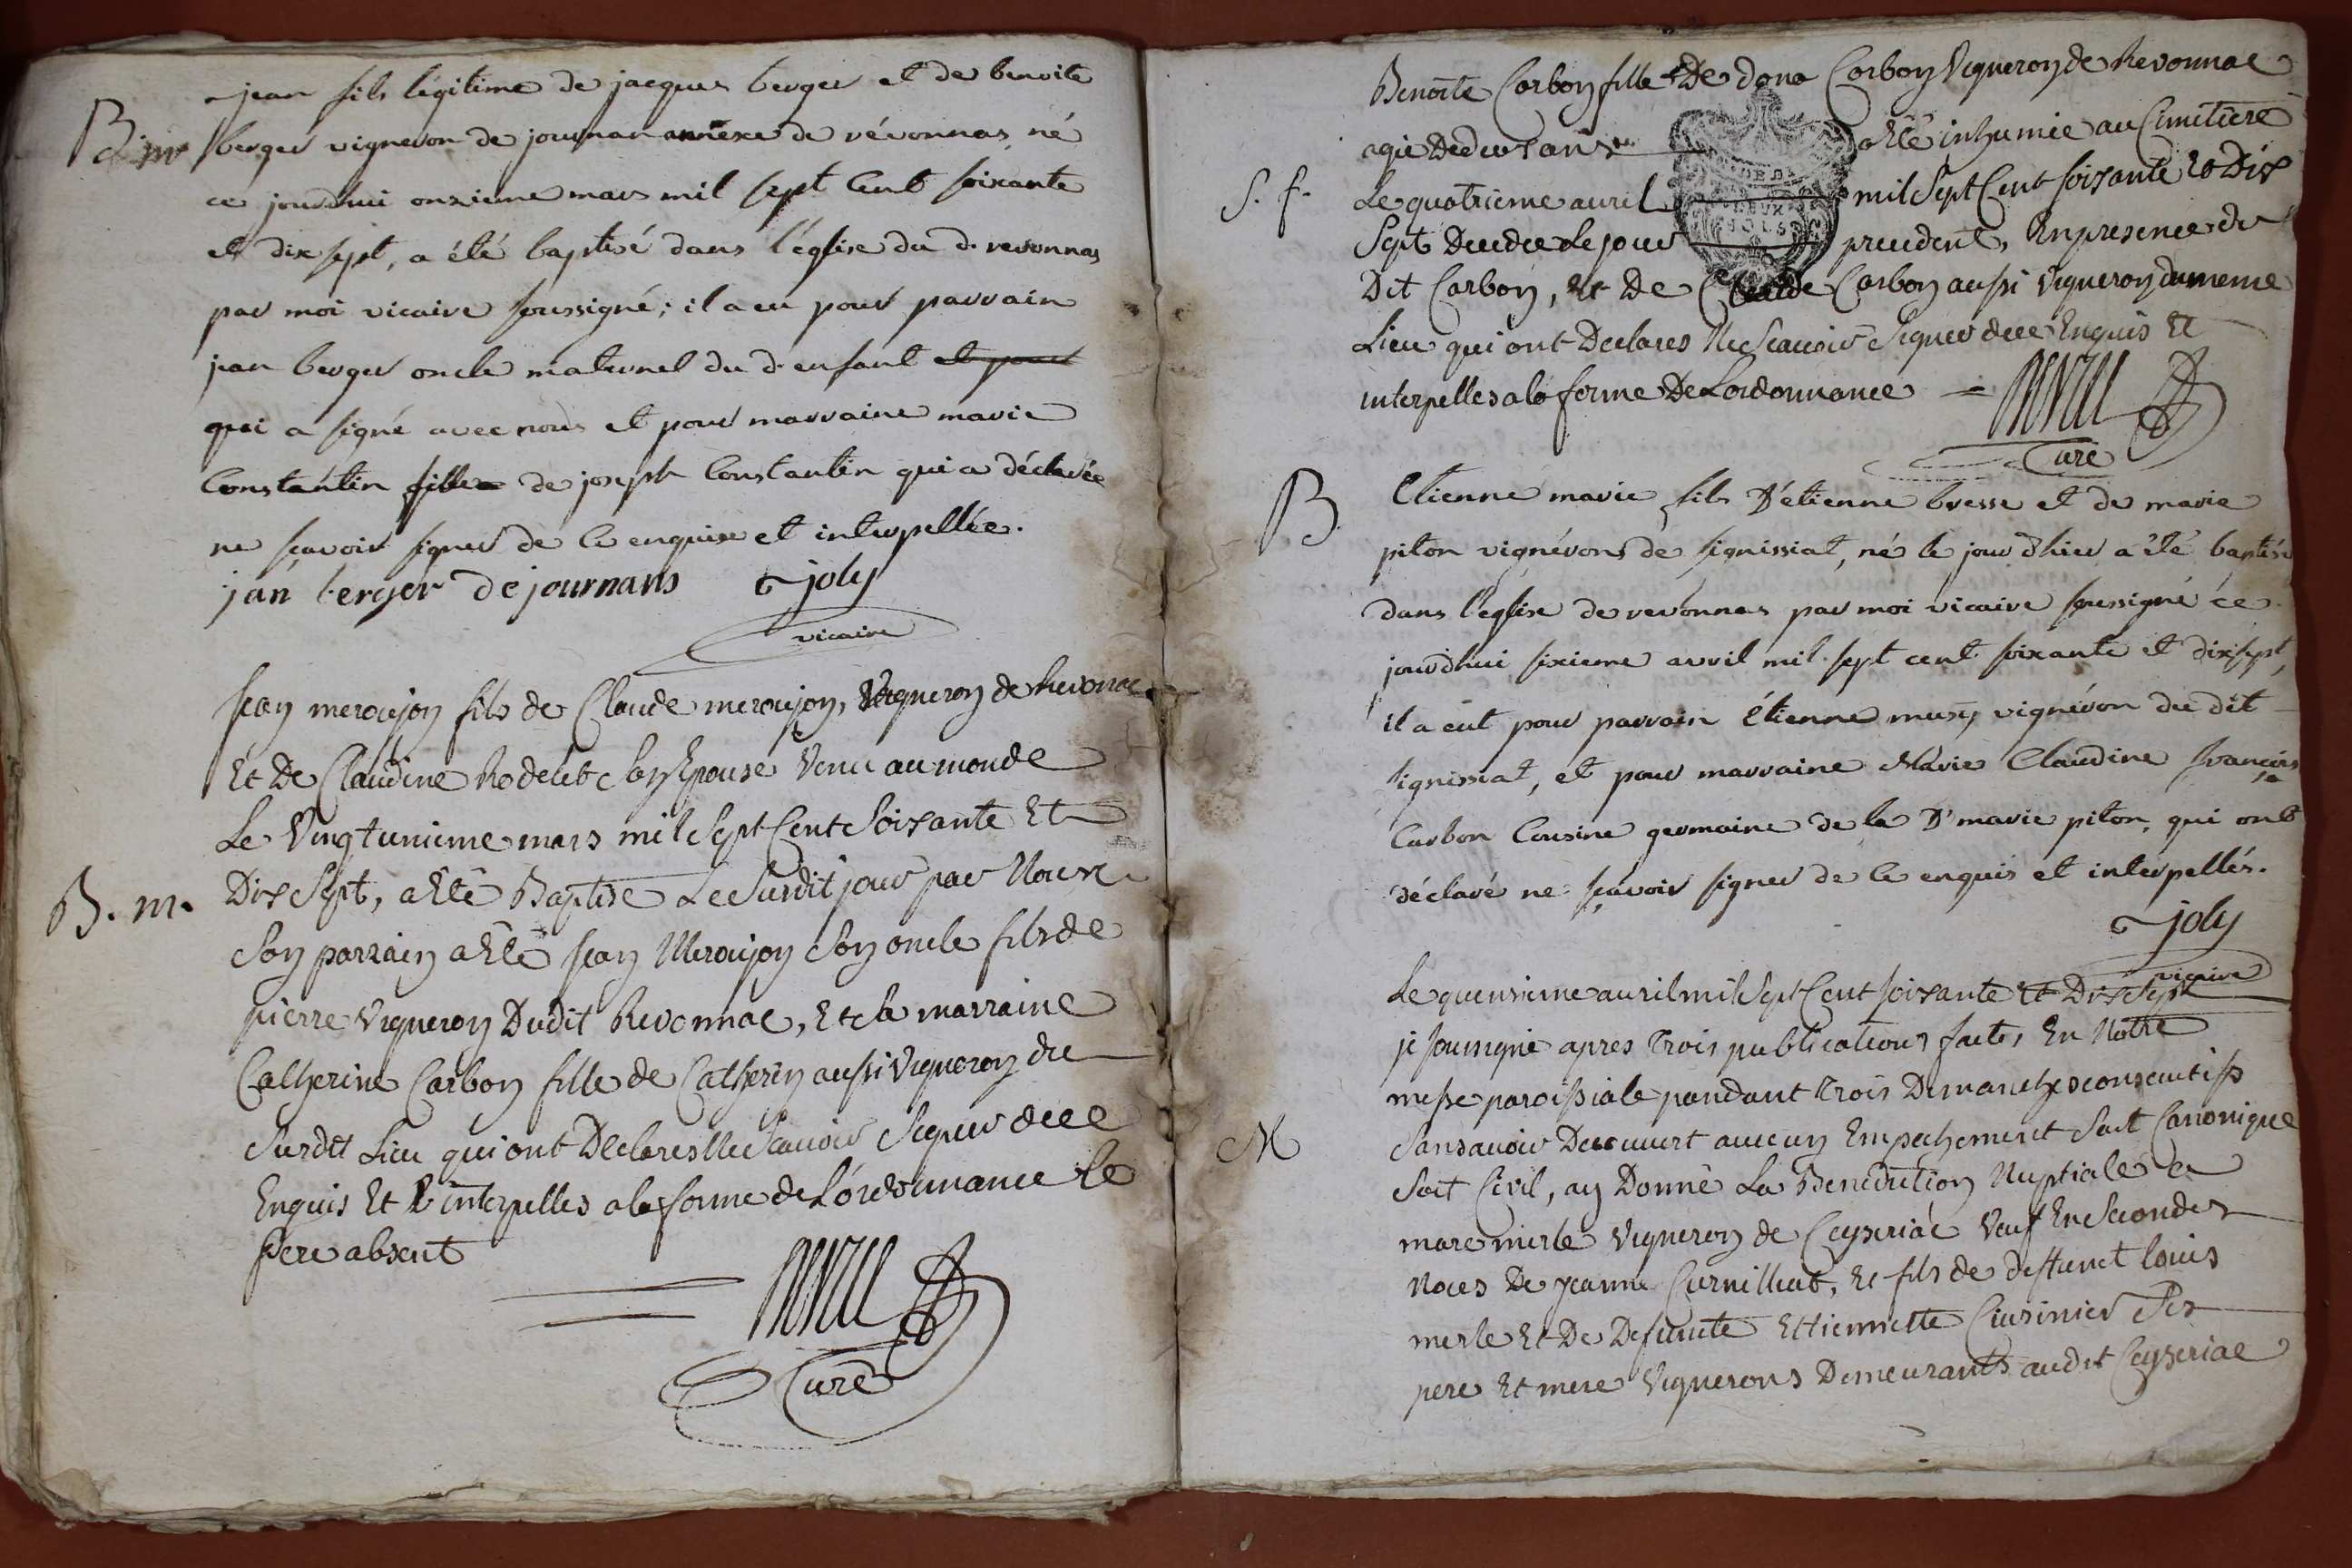 jean fils légitime de jacques berger et de benoite
B. m. berger vigneron de journan annexe de révonnas, né
ce jourdhui onzieme mars mil sept Cent soixante
et dix sept, a été baptisé dans l'église du d. revonnas
par moi vicaire soussigné; il a eu pour parrain
jean berger oncle maternel du d. enfant et pour
qui a signé avec nous et pour marraine marie
Constantin fille de joseph Constantin qui a déclarée
ne sçavoir signer de ce enquise et interpellée.
jan berger de journans joly
vicaire
jean meroujon fils de Claude meroujon, Vigneron de Revonnac
Et De Claudine Rodelet Son Epouse Venu au monde
Le Vingtunieme mars mil Sept Cent Soixante Et
B. m. Dix Sept, a Eté Baptisé Le Surdit jour par Nous
Son parrain a Eté jean Meroujon Son oncle fils de
pierre Vigneron Dudit Revonnac, Et la marraine
Catherine Carbon fille de Catherin aussi Vigneron du
Surdit Lieu qui ont Declares Ne Scavoir Signer de ce
Enquis Et interpelles a la forme de L'ordonnance Le
pere absent
Curé
Benoite Carbon fille De dona Carbon Vigneron de Revonnac
agée De deux ans a Eté inhumée au Cimetiere
S. f. Le quatrieme avril mil Sept Cent soixante Et Dix
Sept Decedee Le jour precedent, En presence du
Dit Carbon, Et De Claude Carbon aussi Vigneron du meme
Lieu qui ont Declares Ne Scavoir Signer de ce Enquis Et
interpelles a la forme De Lordonnance
Curé
B Etienne marie fils D'étienne bresse et de marie
piton vignérons de signissiat, né le jour d'hier a été baptisé
dans l'église de revonnas par moi vicaire soussigné ce
jourdhui sixieme avril mil sept cent soixante et dix sept,
il a eût pour parrain étienne musy vignéron du dit
signissiat, et pour marraine Marie Claudine françoise
Carbon Cousine germaine de la D' marie piton, qui ont
déclaré ne sçavoir signer de ce enquis et interpellés.
joly
vicaire
Le quensieme avril mil Sept Cent soixante Et Dix Sept
je soussigné apres trois publications faites En Notre
messe paroissiale pandant trois Dimanches consecutifs
M Sans avoir Decouvert aucun Empechement Soit Canonique
Soit Civil, ay Donné La Benediction Nuptiale a
marc merle Vigneron de Ceyseriac Veuf En Secondes
Noces De jeanne Curnilleat, Et fils de deffunct louis
merle Et De Defuncte Ettiennette Cuisinier Ses
pere Et mere Vignerons Demeurants audit Ceyseriac